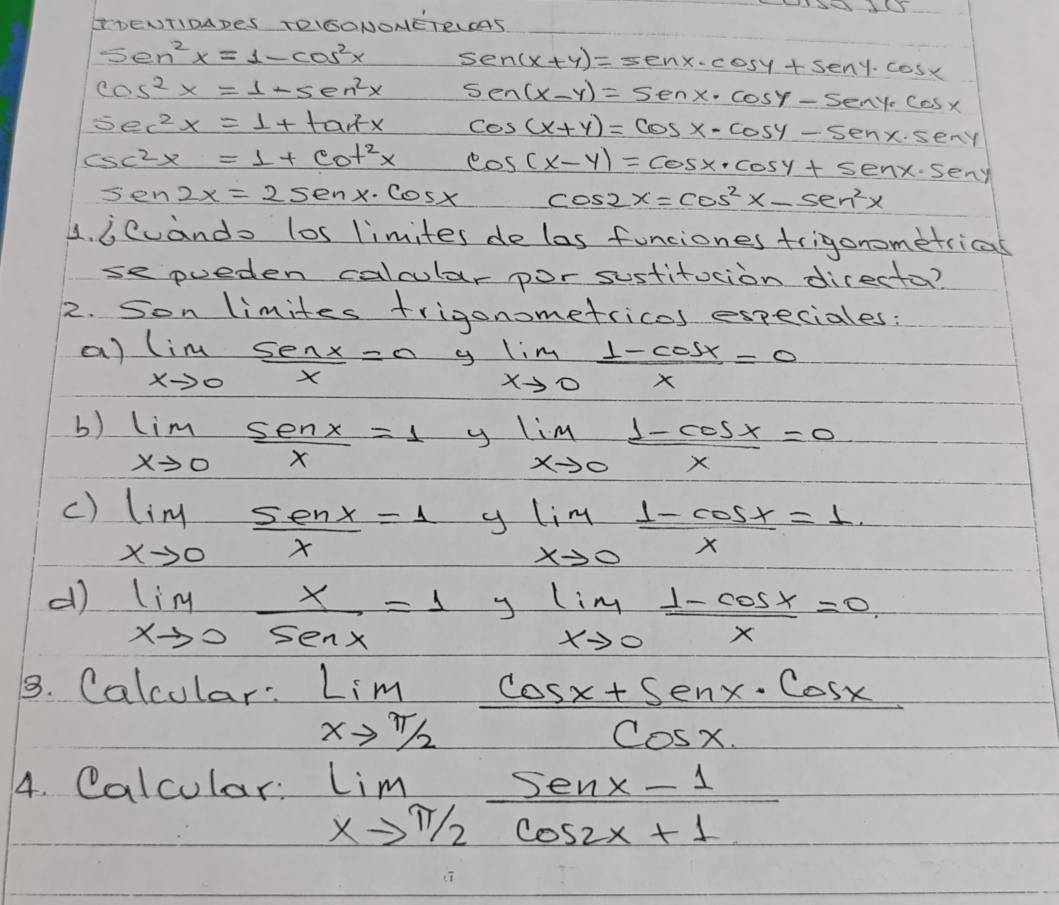 IDENTIDADES TRIGONOMÉTRICAS
sen²x = 1 - cos²x sen(x+y) = senx·cosy + seny·cosx
cos²x = 1 - sen²x sen(x-y) = senx·cosy - seny·cosx
sec²x = 1 + tan²x cos(x+y) = cosx·cosy - senx·seny
csc²x = 1 + cot²x cos(x-y) = cosx·cosy + senx·seny
sen2x = 2senx·cosx cos2x = cos²x - sen²x
1. ¿Cuàndo los limites de las funciones trigonomètricas
se pueden calcular por sustitución directa?
2. Son limites trigonometricos especiales:
a) lim x→0 senx/x = 0 y lim x→0 1-cosx/x = 0
b) lim x→0 senx/x = 1 y lim x→0 1-cosx/x = 0
c) lim x→0 senx/x = 1 y lim x→0 1-cosx/x = 1.
d) lim x→0 x/senx = 1 y lim x→0 1-cosx/x = 0.
3. Calcular: Lim x→π/2 cosx + senx·cosx/cosx.
4. Calcular: Lim x→π/2 senx - 1/cos2x + 1